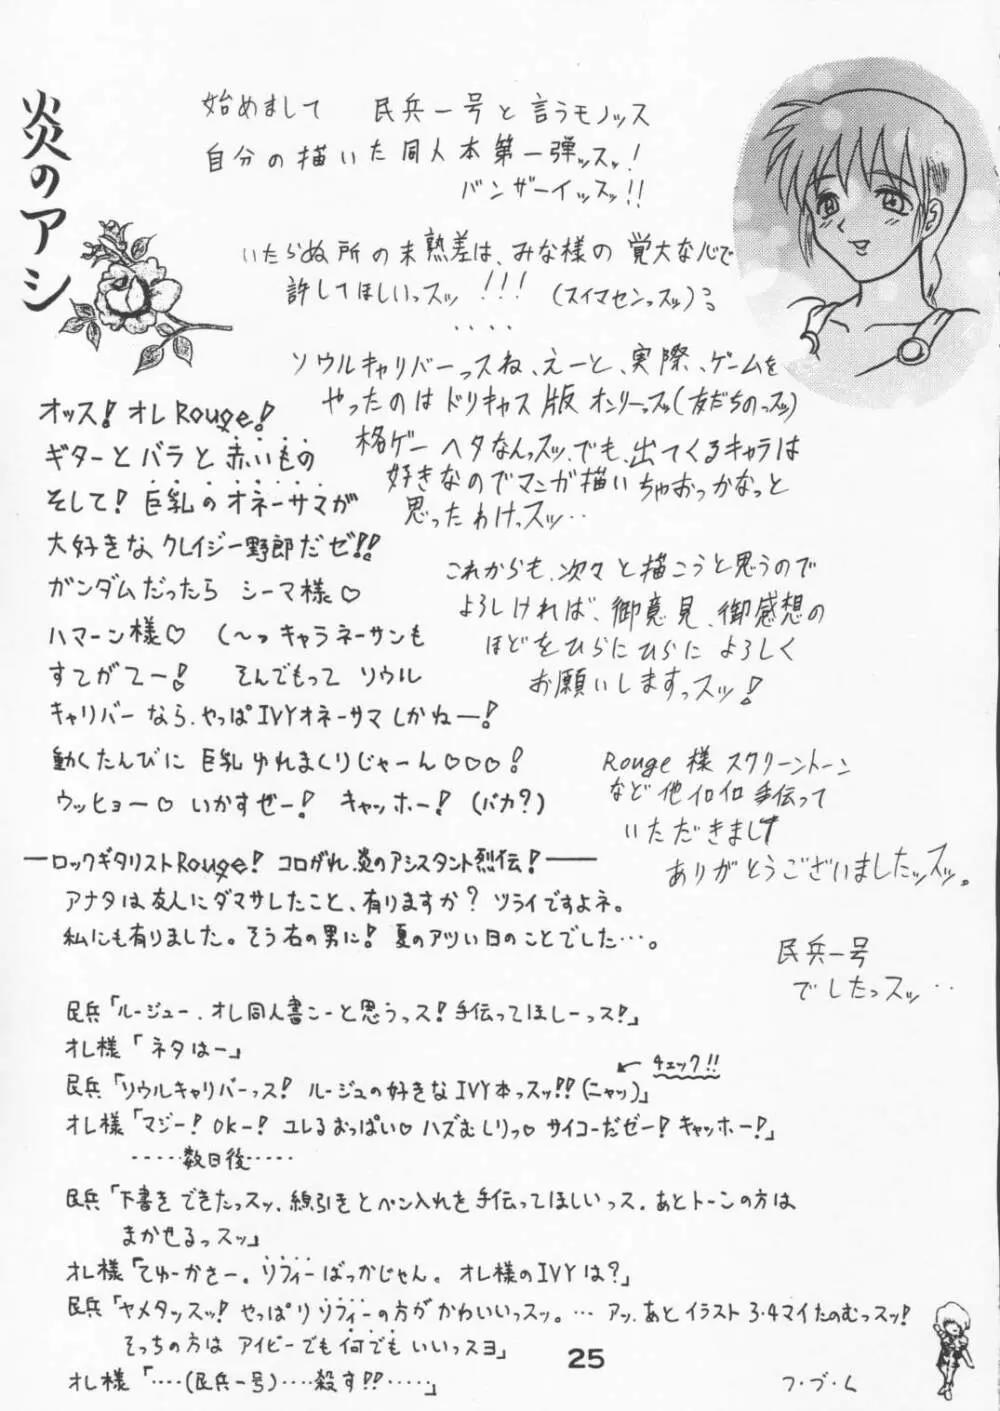 炎のアシ
始めまして 民兵一号と言うモノッス
自分の描いた同人本第一弾ッスッ!
バンザーイッスッ!!
いたらぬ所の未熟差は、みな様の覚大な心で
許してほしいっスッ!!!(スイマセンっスッ)
・・・・
ソウルキャリバーっスね、えーと、実際、ゲームを
やったのはドリキャス版オンリーっスッ(友だちのっスッ)
格ゲーヘタなんっスッ、でも、出てくるキャラは
好きなのでマンガ描いちゃおっかなっと
思ったわけっスッ・・
これからも、次々と描こうと思うので
よろしければ、御意見、御感想の
ほどをひらにひらによろしく
お願いしますっスッ!
Rouge様 スクリーントーン
など他イロイロ手伝って
いただきまして
ありがとうございましたッスッ。
民兵一号
でしたっスッ・・
オッス!オレRouge!
ギターとバラと赤いもの
そして!巨乳のオネーサマが
大好きなクレイジー野郎だゼ!!
ガンダムだったら シーマ様♡
ハマーン様♡ (〜っキャラネーサンも
すてがてー! そんでもって ソウル
キャリバーなら、やっぱIVYオネーサマしかねー!
動くたんびに 巨乳ゆれまくりじゃーん♡♡♡!
ウッヒョー♡ いかすぜー! キャッホー!(バカ?)
―ロックギタリストRouge! コロがれ、炎のアシスタント烈伝!―
アナタは友人にダマサレたこと、有りますか? ツライですよネ。
私にも有りました。そう右の男に! 夏のアツい日のことでした・・・。
民兵「ルージュー、オレ同人書こーと思うっス!手伝ってほしーっス!」
オレ様「ネタはー」
チェック!!
民兵「ソウルキャリバーっス! ルージュの好きなIVY本っスッ!!(ニャッ)」
オレ様「マジー!OKー!ユレるおっぱい♡ハズむしりっ♡サイコーだゼー!キャッホー!」
・・・・・数日後・・・・・
民兵「下書きできたっスッ、線引きとペン入れを手伝ってほしいっス、あとトーンの方は
まかせるっスッ」
オレ様「てゆーかさー。ソフィーばっかじゃん。オレ様のIVYは?」
民兵「ヤメタッスッ!やっぱりソフィーの方がかわいいっスッ。・・・アッ、あとイラスト3・4マイたのむっスッ!
そっちの方はアイビーでも何でもいいっスヨ」
オレ様「・・・・(民兵一号)・・・・殺す!!・・・・・」
つ・づ・く
25